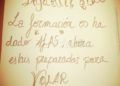 La formación os ha
dado ALAS, ahora
estáis preparados para
VOLAR